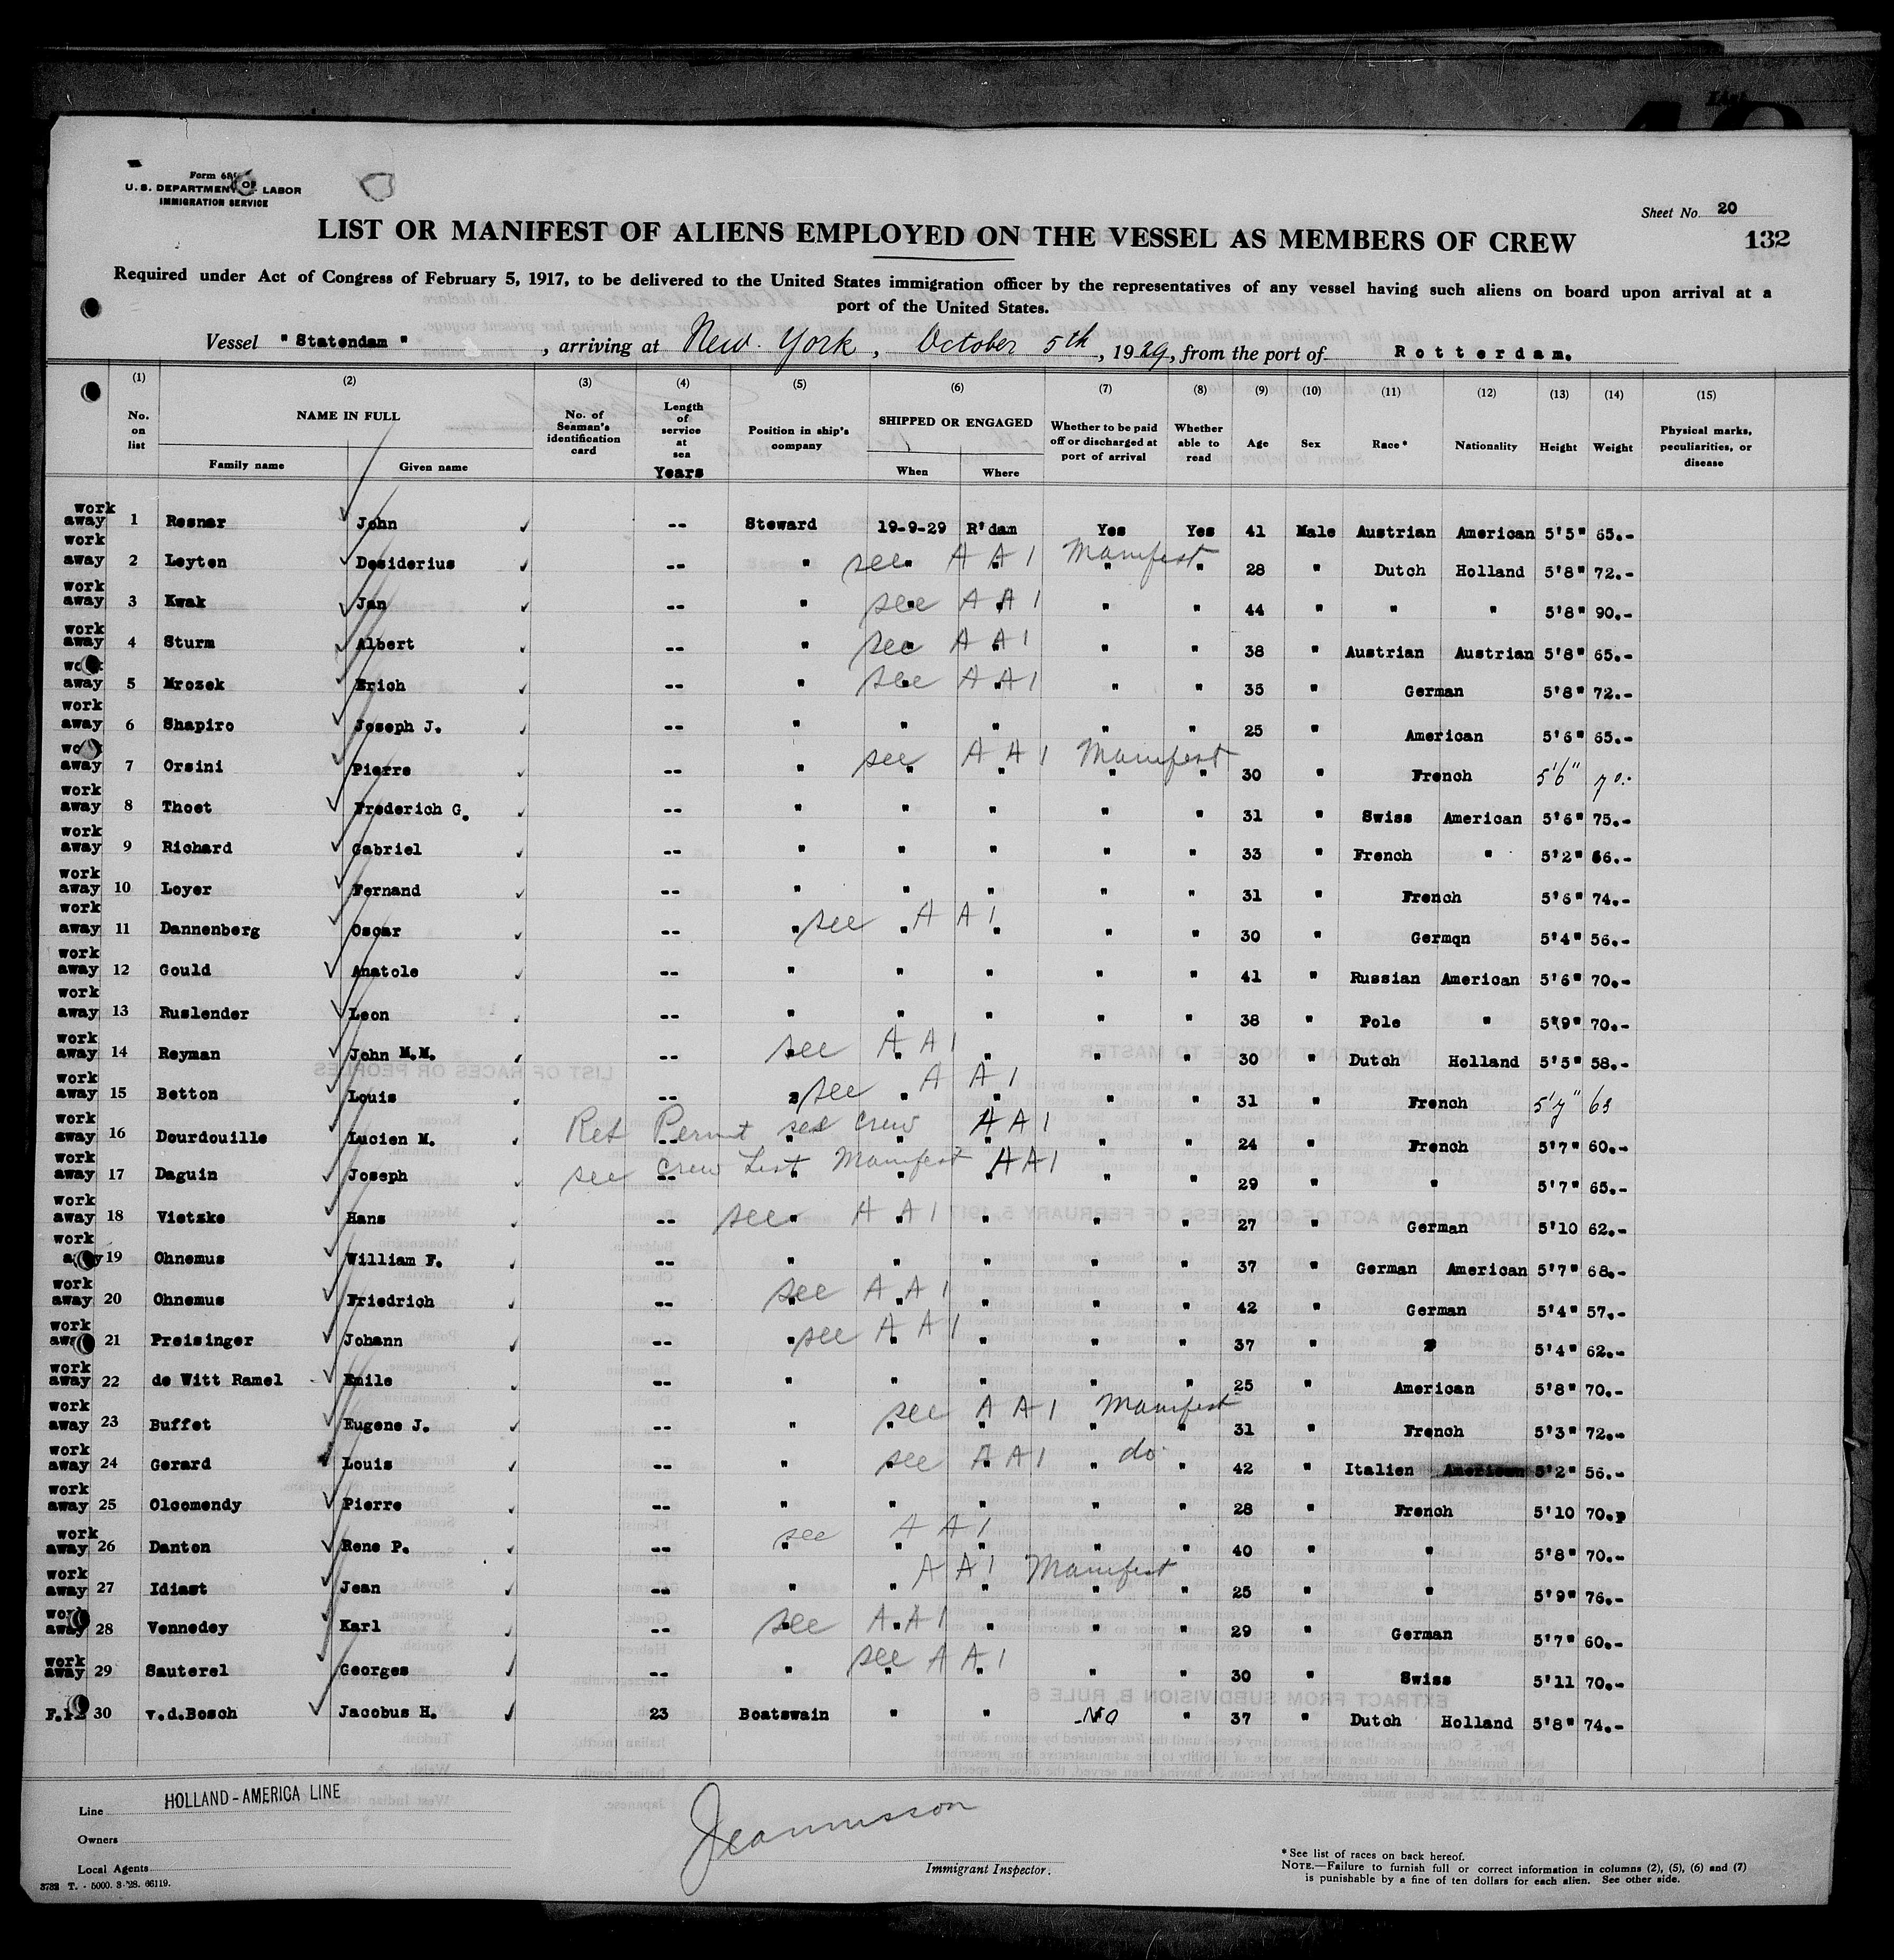 Form 689
U. S. DEPARTMENT OF LABOR
IMMIGRATION SERVICE
Sheet No. 20
LIST OR MANIFEST OF ALIENS EMPLOYED ON THE VESSEL AS MEMBERS OF CREW
132
Required under Act of Congress of February 5, 1917, to be delivered to the United States immigration officer by the representatives of any vessel having such aliens on board upon arrival at a
port of the United States.
Vessel "Statendam", arriving at New York, October 5th, 1929, from the port of Rotterdam.
(1) (2) (3) (4) (5) (6) (7) (8) (9) (10) (11) (12) (13) (14) (15)
No. on list NAME IN FULL Family name Given name No. of Seaman's identification card Length of service at sea Years Position in ship's company SHIPPED OR ENGAGED When Where Whether to be paid off or discharged at port of arrival Whether able to read Age Sex Race* Nationality Height Weight Physical marks, peculiarities, or disease
work away 1 Resnar John -- Steward 19-9-29 R'dam Yes Yes 41 Male Austrian American 5'5" 65.-
work away 2 Leyten Desiderius -- " see " A A 1 " Manifest " " 28 " Dutch Holland 5'8" 72.-
work away 3 Kwak Jan -- " see " A A 1 " " " 44 " " " 5'8" 90.-
work away 4 Sturm Albert -- " see " A A 1 " " " 38 " Austrian Austrian 5'8" 65.-
work away 5 Mrozek Erich -- " see " A A 1 " " " 35 " German 5'8" 72.-
work away 6 Shapiro Joseph J. -- " " " " " 25 " American 5'6" 65.-
work away 7 Orsini Pierre -- " see " A A 1 " Manifest " " 30 " French 5'6" 70.-
work away 8 Thoet Frederich G. -- " " " " " 31 " Swiss American 5'6" 75.-
work away 9 Richard Gabriel -- " " " " " 33 " French " 5'2" 66.-
work away 10 Loyer Fernand -- " " " " " 31 " French 5'6" 74.-
work away 11 Dannenberg Oscar -- " see " A A 1 " " " 30 " Germqn 5'4" 56.-
work away 12 Gould Anatole -- " " " " " 41 " Russian American 5'6" 70.-
work away 13 Ruslender Leon -- " " " " " 38 " Pole " 5'9" 70.-
work away 14 Reyman John M.M. -- " see " A A 1 " " " 30 " Dutch Holland 5'5" 58.-
work away 15 Betton Louis -- " see " A A 1 " " " 31 " French 5'7" 63
work away 16 Dourdouille Lucien M. Ret Permit see crew A A 1 -- " " " " " 24 " French 5'7" 60.-
work away 17 Daguin Joseph see crew List Manifest A A 1 -- " " " " " 29 " " 5'7" 65.-
work away 18 Vietzke Hans -- see " A A 1 " " " " 27 " German 5'10 62.-
work away 19 Ohnemus William F. -- " " " " " 37 " German American 5'7" 68.-
work away 20 Ohnemus Friedrich -- see " A A 1 " " " " 42 " German 5'4" 57.-
work away 21 Preisinger Johann -- " see A A 1 " " " " 37 " " 5'4" 62.-
work away 22 de Witt Ramel Emile -- " " " " " 25 " American 5'8" 70.-
work away 23 Buffet Eugene J. -- " see " A A 1 " Manifest " " 31 " French 5'3" 72.-
work away 24 Gerard Louis -- " see " A A 1 " do " " 42 " Italien American 5'2" 56.-
work away 25 Olcomendy Pierre -- " " " " " 28 " French 5'10 70.-
work away 26 Danton Rene P. -- see " A A 1 " " " " 40 " " 5'8" 70.-
work away 27 Idiast Jean -- " " A A 1 " Manifest " " 25 " " 5'9" 76.-
work away 28 Vennedey Karl -- see " A A 1 " " " " 29 " German 5'7" 60.-
work away 29 Sauterel Georges -- " see " A A 1 " " " 30 " Swiss 5'11 70.-
30 v.d.Bosch Jacobus H. 23 Boatswain " " No " 37 " Dutch Holland 5'8" 74.-
Line HOLLAND-AMERICA LINE
Owners
Local Agents
Immigrant Inspector.
* See list of races on back hereof.
NOTE.—Failure to furnish full or correct information in columns (2), (5), (6) and (7)
is punishable by a fine of ten dollars for each alien. See other side.
3782 T. - 5000. 3-'28. 66119.